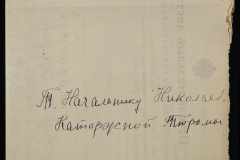 Начальнику Николаев.
Каторжной Тюрьмы